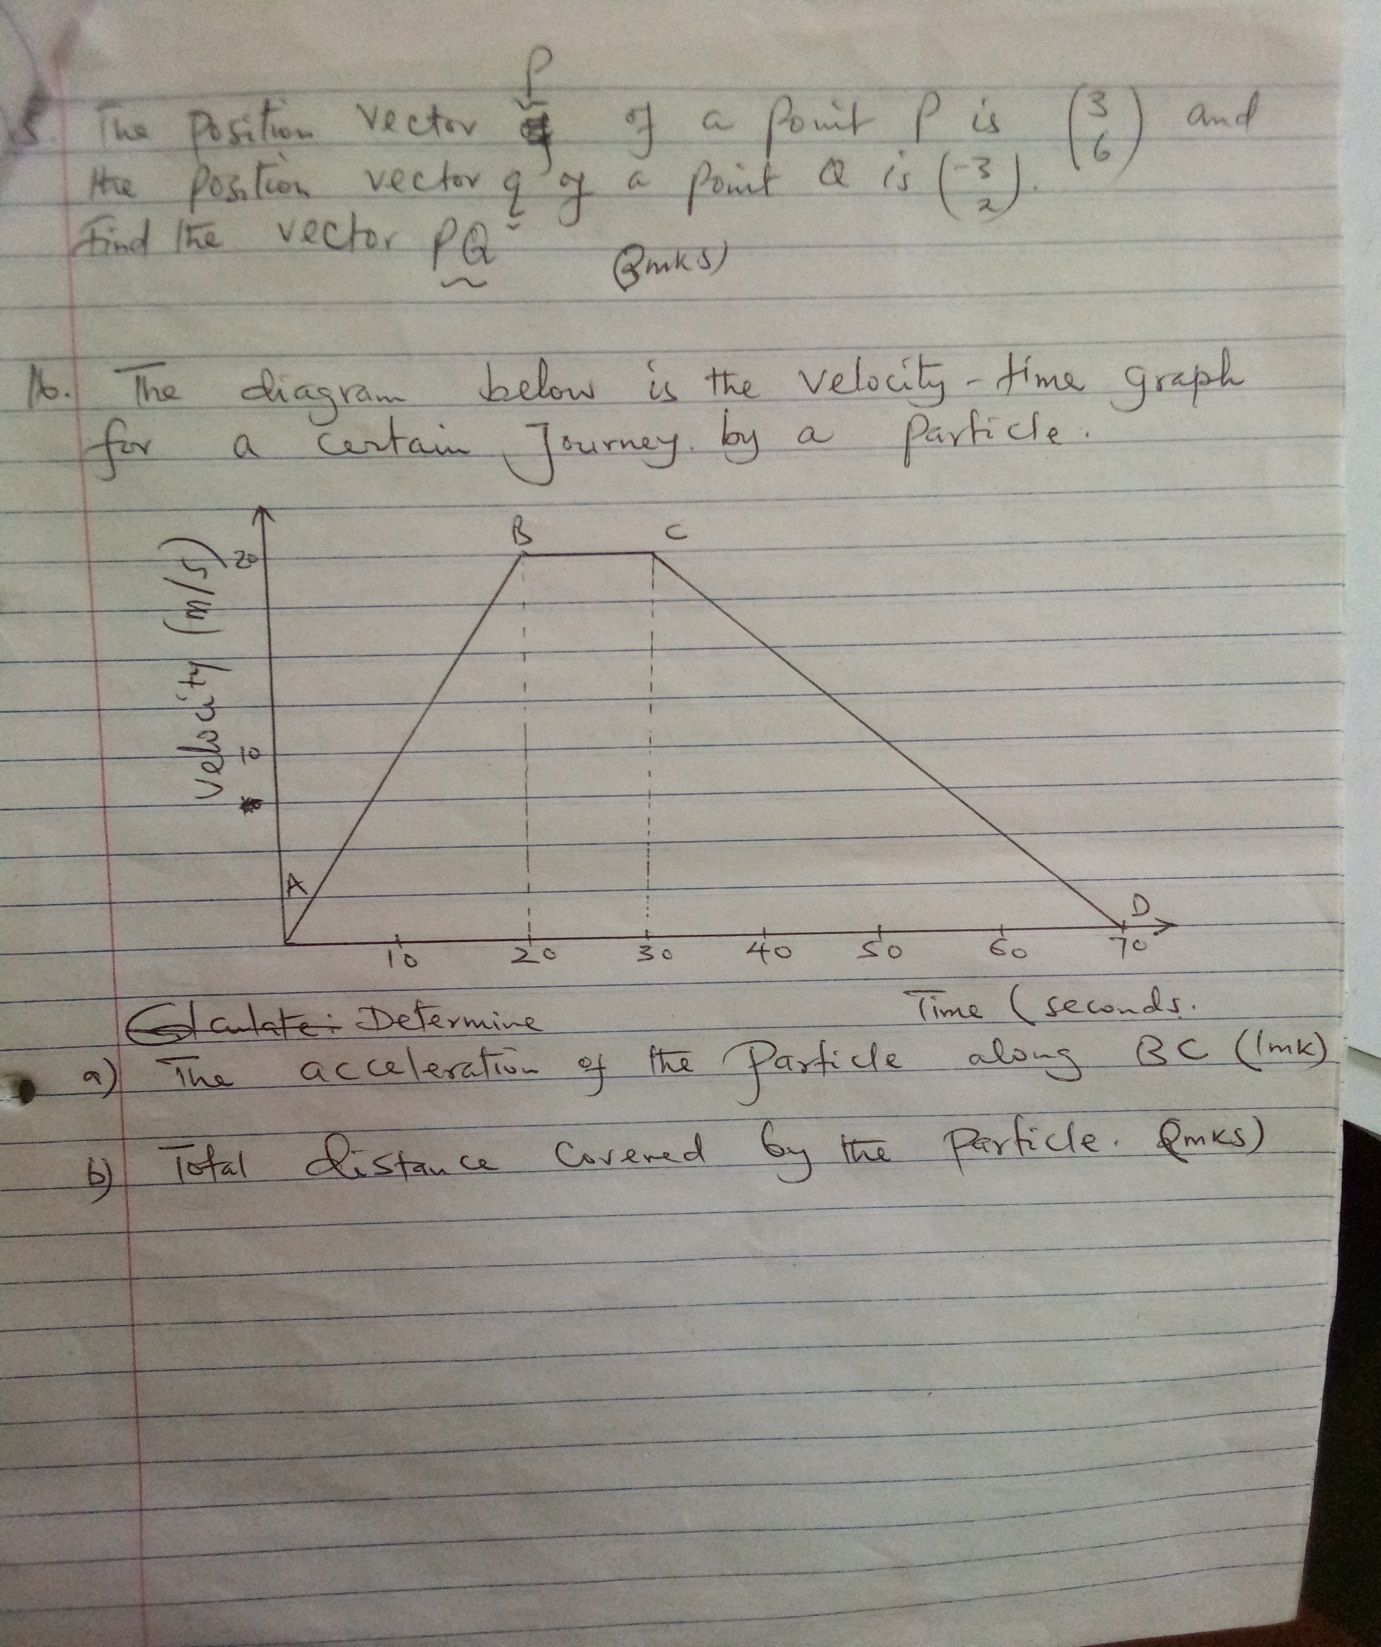 5. The position vector p of a point P is (3 6) and
the position vector q of a point Q is (-3 2).
Find the vector PQ (2mks)
16. The diagram below is the velocity-time graph
for a certain Journey. by a particle.
Velocity (m/s)
20
10
A
B
C
D
10 20 30 40 50 60 70
Time (seconds.
Calculate: Determine
a) The acceleration of the Particle along BC (1mk)
b) Total distance covered by the particle. (2mks)